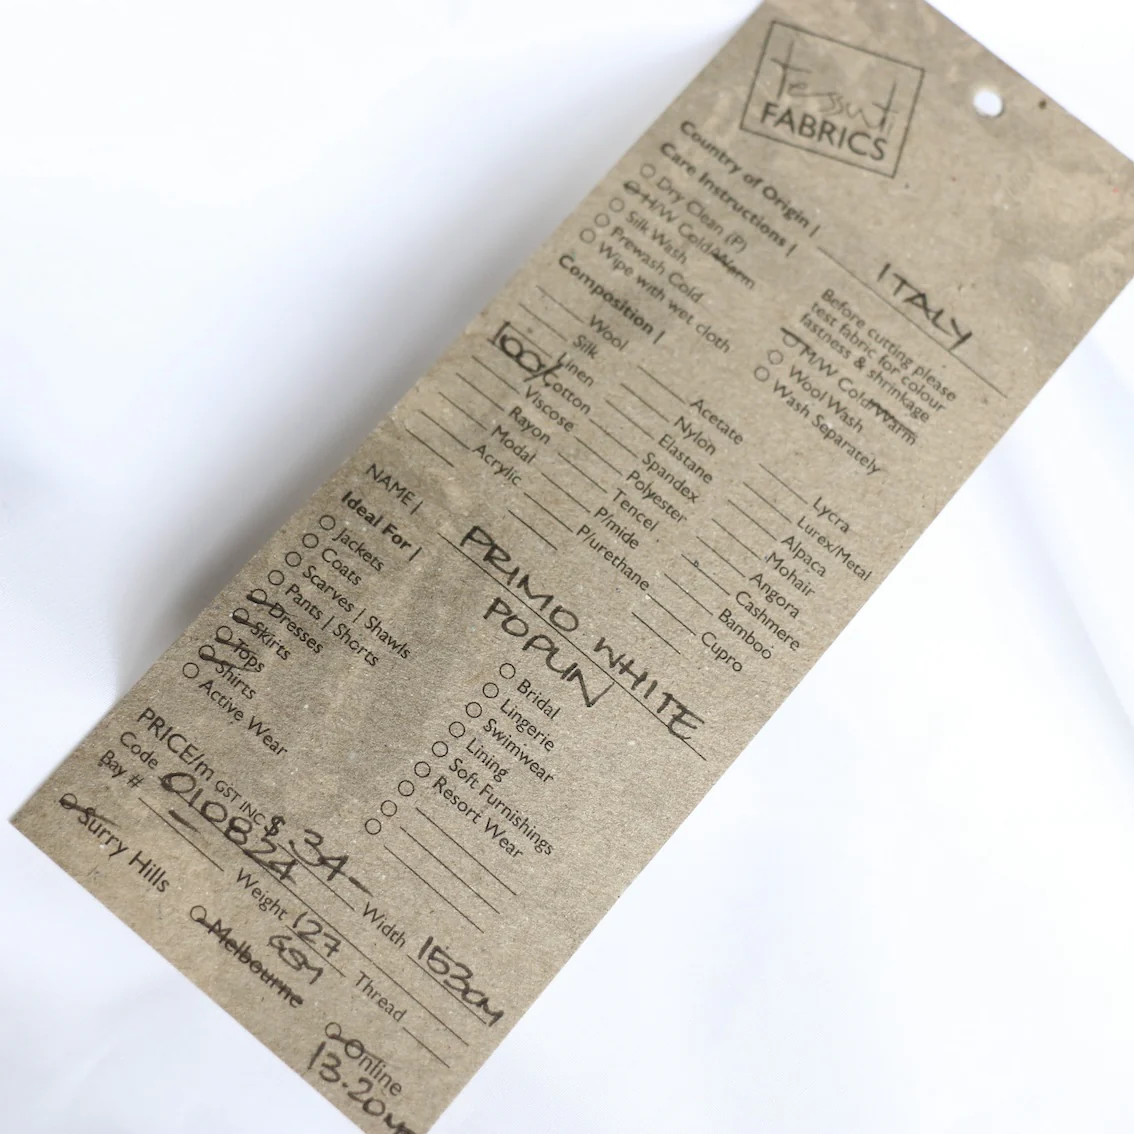 tessuti
FABRICS
Country of Origin | ITALY
Care Instructions |
Dry Clean (P)
H/W Cold/Warm
Silk Wash
Prewash Cold
Wipe with wet cloth
Before cutting please
test fabric for colour
fastness & shrinkage
M/W Cold/Warm
Wool Wash
Wash Separately
Composition |
Wool
Silk
Linen
100% Cotton
Viscose
Rayon
Modal
Acrylic
Acetate
Nylon
Elastane
Spandex
Polyester
Tencel
P/mide
P/urethane
Lycra
Lurex/Metal
Alpaca
Mohair
Angora
Cashmere
Bamboo
Cupro
NAME | PRIMO WHITE
POPLIN
Ideal For |
Jackets
Coats
Scarves | Shawls
Pants | Shorts
Dresses
Skirts
Tops
Shirts
Active Wear
Bridal
Lingerie
Swimwear
Lining
Soft Furnishings
Resort Wear
PRICE/m GST INC $34- Width 153cm
Code 010824 Weight 127 GSM Thread
Bay #
Surry Hills
Melbourne
Online
13.20m